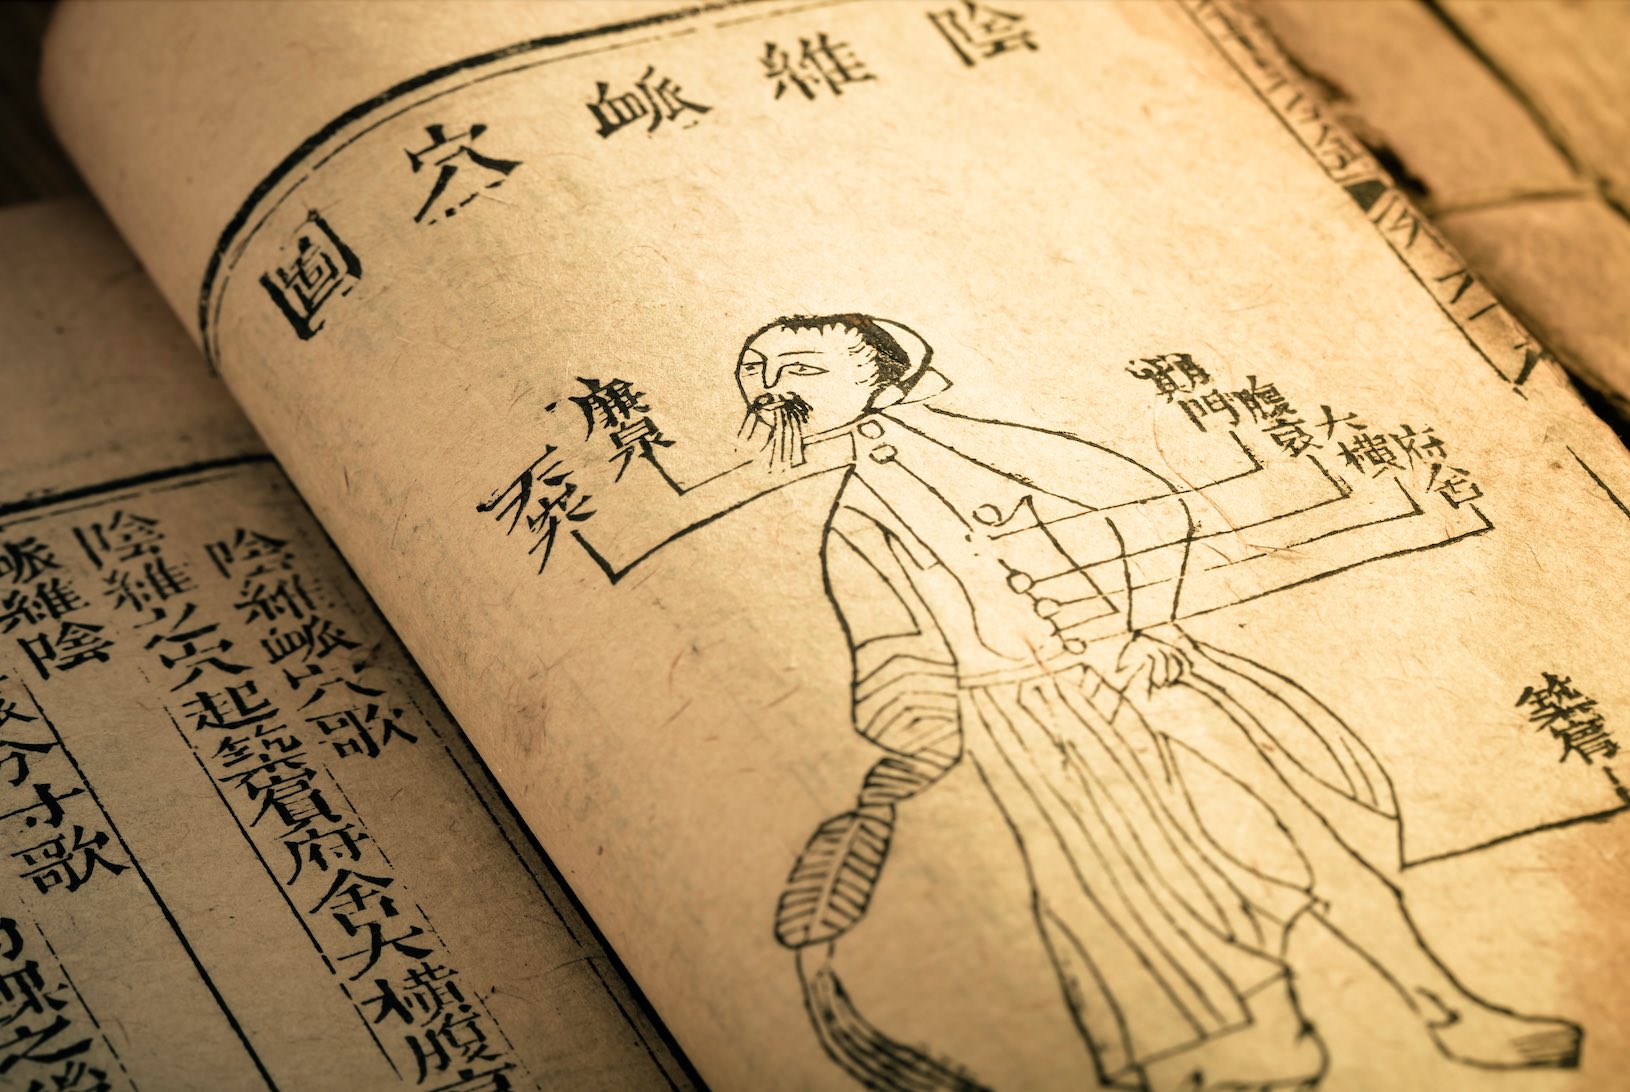 陰維䘑穴圖
期門
腹哀
大橫
府舍
廉泉
天突
築賓
陰維䘑穴歌
陰維之穴起築賓府舍大橫腹
䘑維陰
分寸歌
踝之後